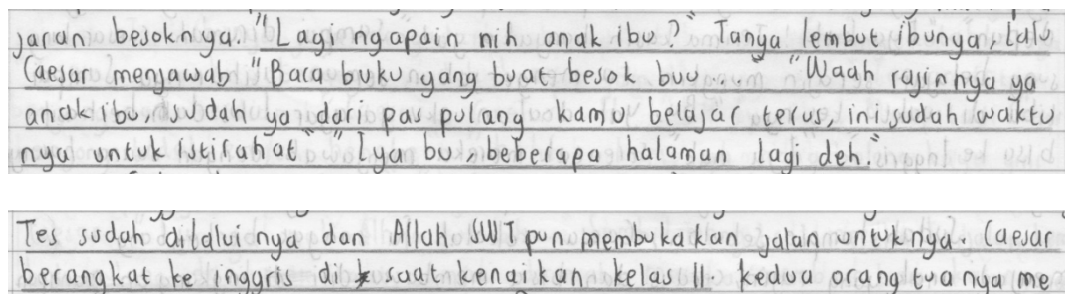 jaran besoknya. "Lagi ngapain nih anak ibu?" Tanya lembut ibunya, lalu
Caesar menjawab "Baca buku yang buat besok buu..." "Waah rajinnya ya
anak ibu, sudah ya dari pas pulang kamu belajar terus, ini sudah waktu
nya untuk istirahat" "Iya bu, beberapa halaman lagi deh."
Tes sudah dilaluinya dan Allah SWT pun membukakan jalan untuknya. Caesar
berangkat ke inggris di saat kenaikan kelas 11 kedua orangtuanya me